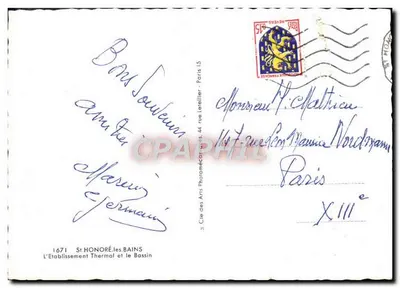 Bons Souvenirs
amitiés
Marius
Germain
1671 St HONORÉ-les BAINS
L'Etablissement Thermal et le Bassin
Cie des Arts Photomécaniques, 44 rue Letellier - Paris 15
Monsieur M. Mathieu
147 rue Léon Maurice Nordmann
Paris
XIIIe
CPAPHIL